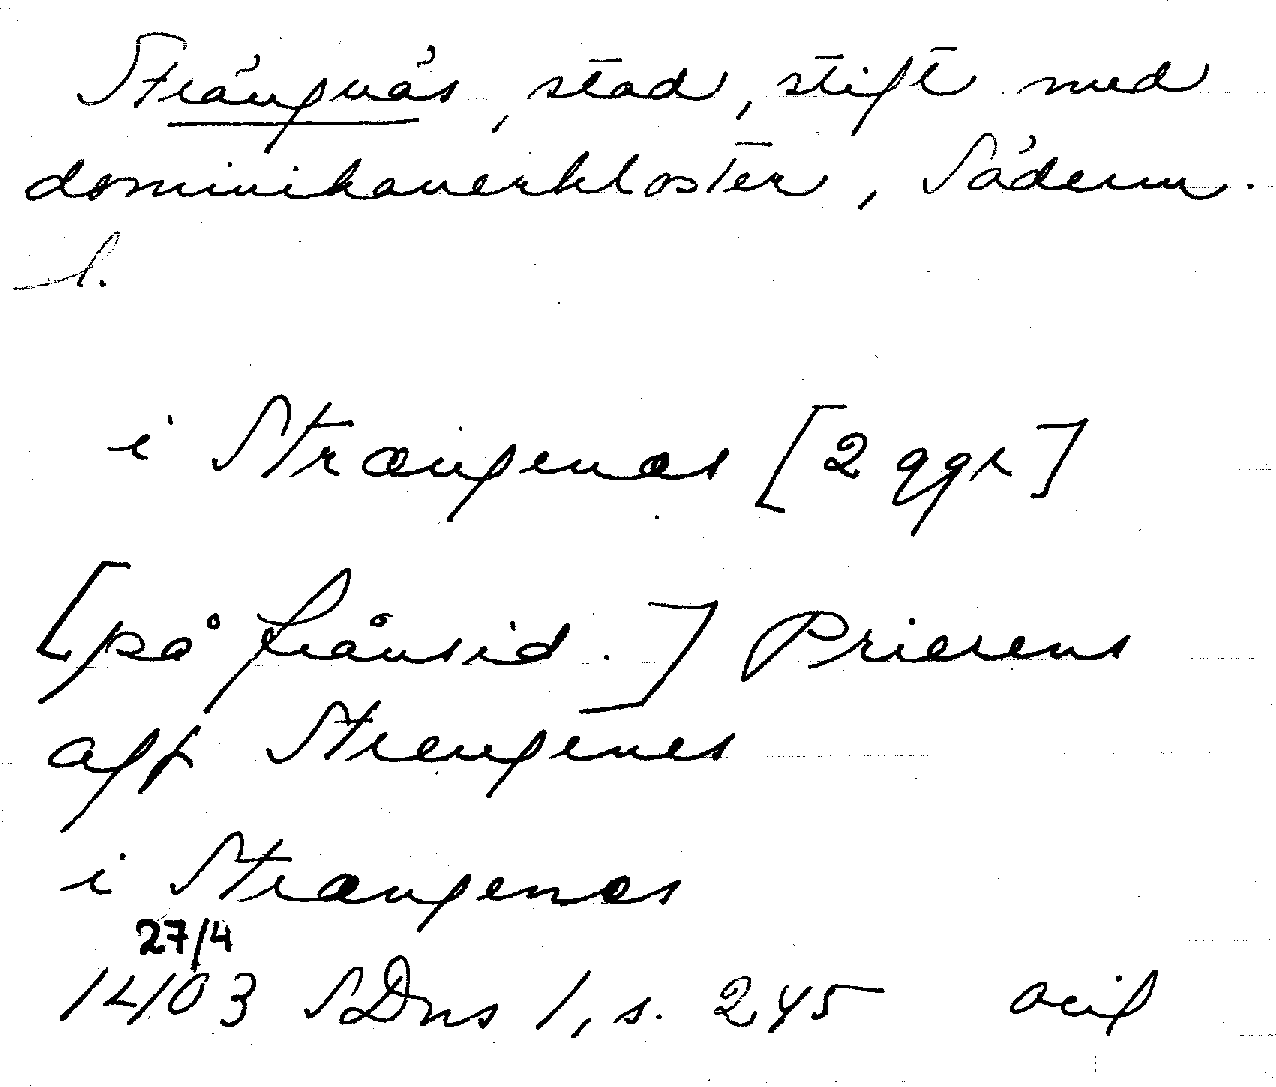 Strängnäs, stad, stift med
dominikanerkloster, Söderm.
l.
i Strængenæs [2 ggr]
[på frånsid.] Prierens
aff Strengenes
i Strængenæs
27/4
1403 SDns 1, s. 245 orig